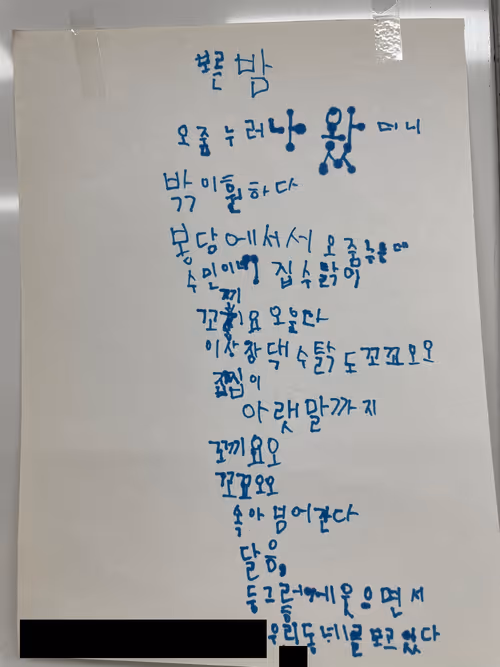 보른 밤
오줌 누러 나 왔 더니
밖 이 훤 하 다
봉당에서서 오줌누는데
수민이네 집 수탉이
꼬끼요 오분다
이상 장댁 수탉도 꼬꾜오오
집이
아랫말까지
꼬끼요오
꼬꾜오오
속아 넘어간다
달은
둥그름에웃으면서
우리동네를 보고 있다